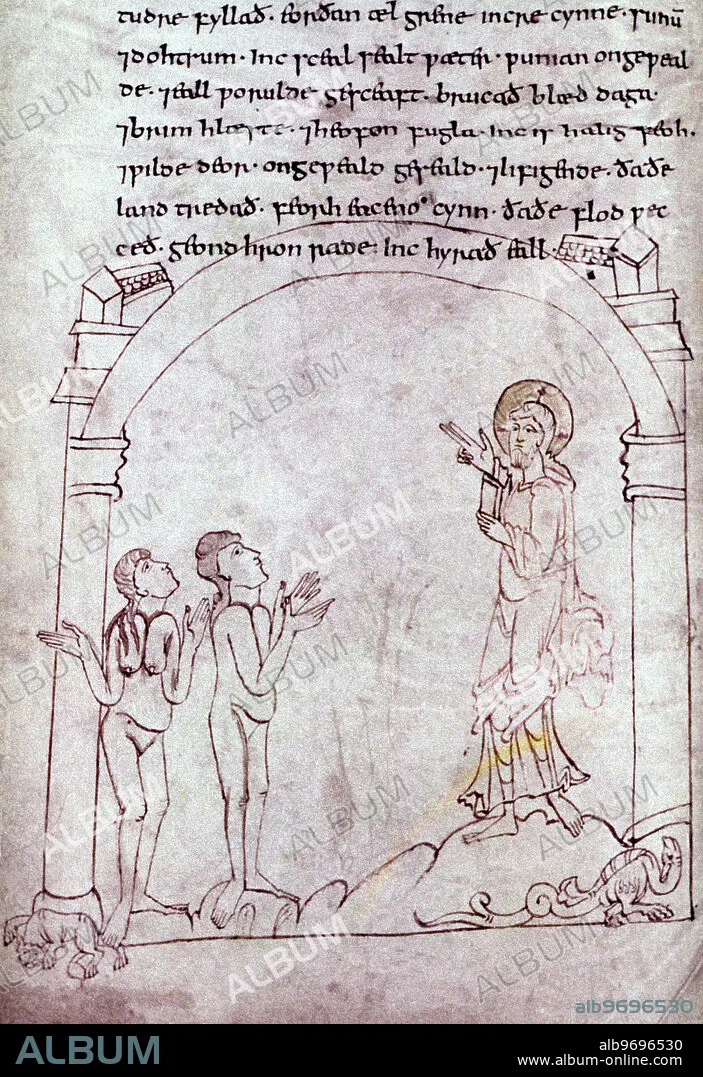 tudre fyllað· eorðan æl grene incre cynne· sunū
⁊dohtrum· Inc sceal sealt wæter· wunian ongeweal
de· ⁊eall worulde gesceaft· brucað blæd daga·
⁊brim hlæste· ⁊heofon fugla· inc is halig feoh·
⁊wilde deor· ongeweald geseald· ⁊lifigende· ðaðe
land tredað· feorh eaceno cynn· ðaðe flod wec
ceð· geond hron rade· Inc hyrað eall·
alb9696530
ALBUM
alb9696530
www.album-online.com